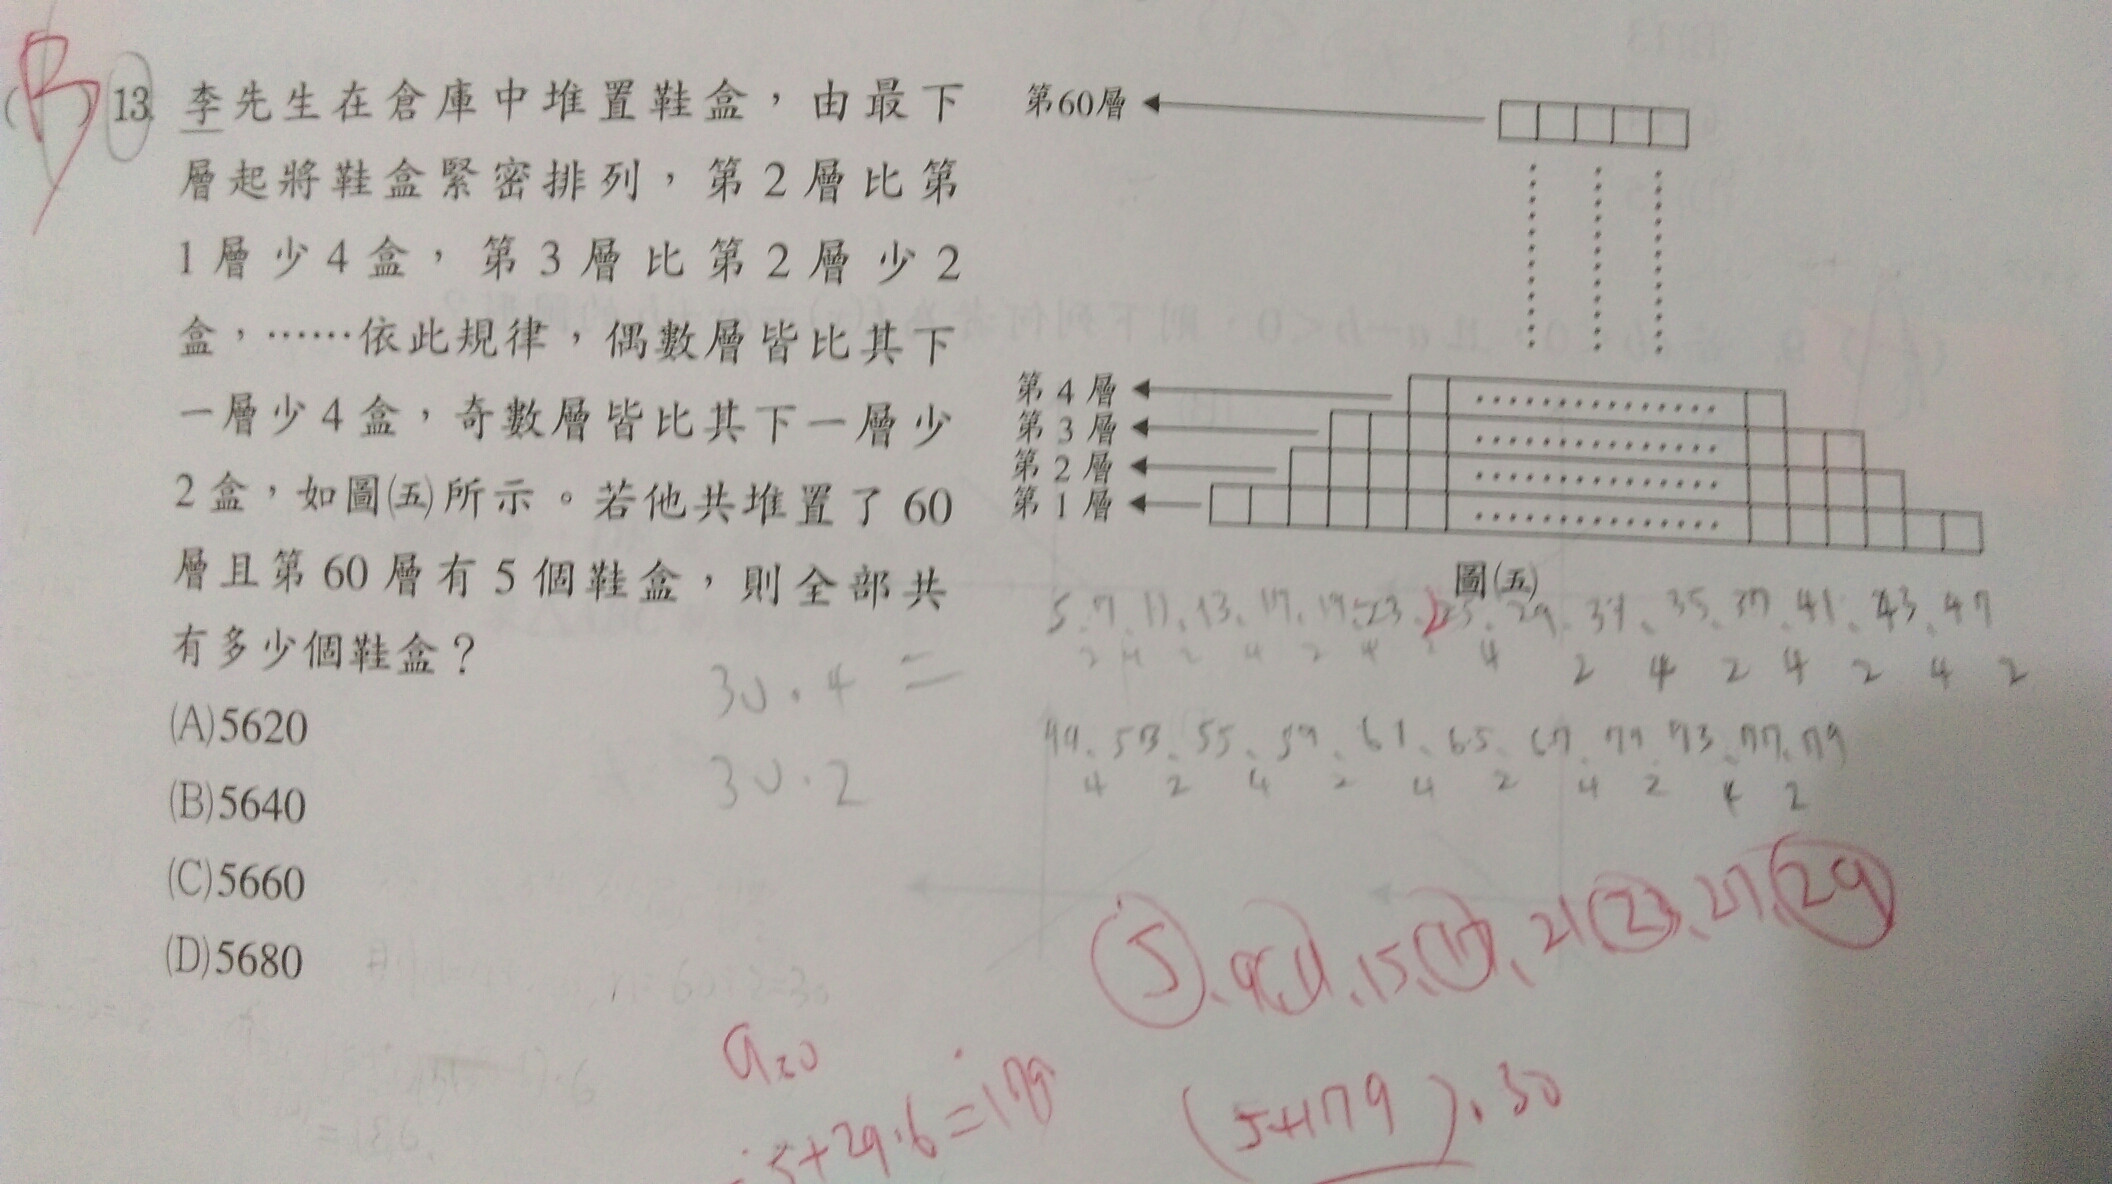 B
13. 李先生在倉庫中堆置鞋盒，由最下
層起將鞋盒緊密排列，第2層比第
1層少4盒，第3層比第2層少2
盒，……依此規律，偶數層皆比其下
一層少4盒，奇數層皆比其下一層少
2盒，如圖㈤所示。若他共堆置了60
層且第60層有5個鞋盒，則全部共
有多少個鞋盒？
(A)5620
(B)5640
(C)5660
(D)5680
第60層
第4層
第3層
第2層
第1層
圖㈤
5、7、11、13、17、19、23、25、29、31、35、37、41、43、47
2 4 2 4 2 4 2 4 2 4 2 4 2 4 2
49、53、55、59、61、65、67、79、73、77、79
4 2 4 2 4 2 4 2 4 2
30·4=
30·2
5、9、11、15、17、21、23、27、29
=5+29·6=179
(5+179)·30